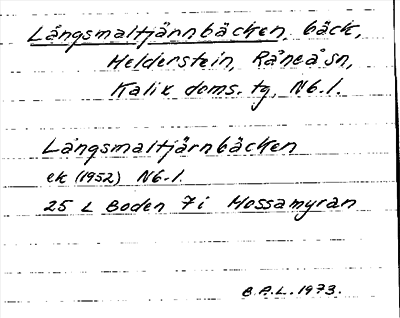 Långsmaltjärnbäcken, bäck,
Helderstein, Råneå sn,
Kalix doms. tg, Nb. l.
Långsmaltjärnbäcken
ek (1952) Nb. l.
25 L Boden 7i Mossamyran
B.P.L. 1973.